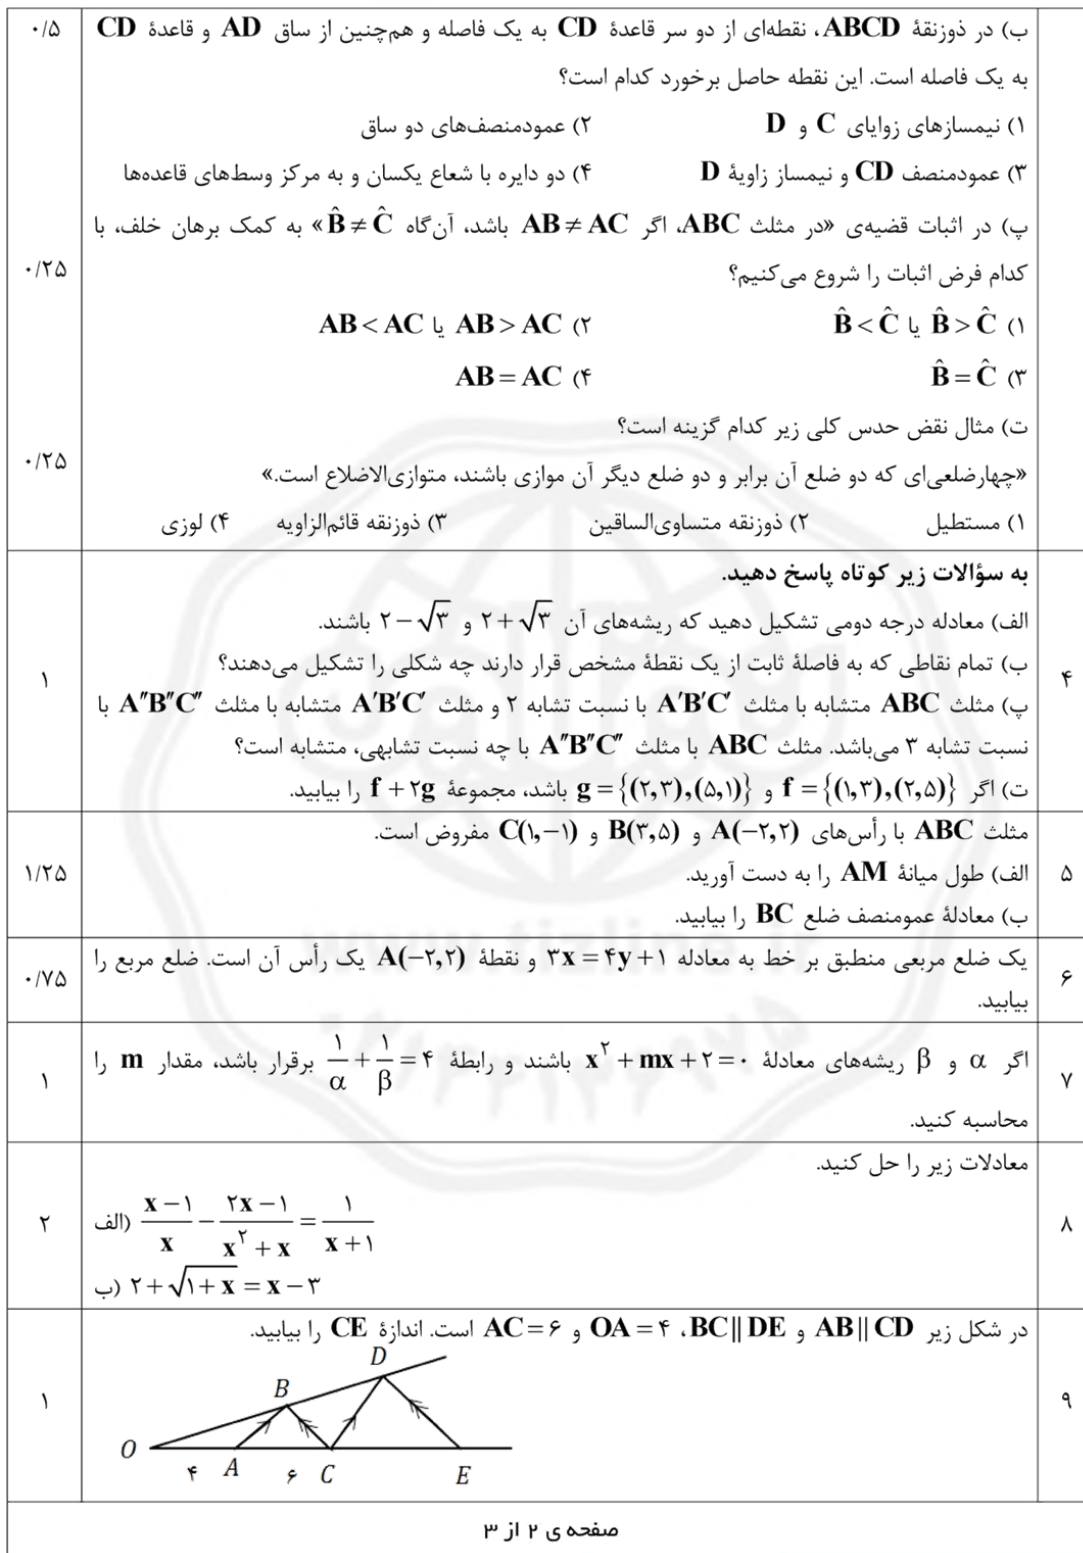 ب) در ذوزنقهٔ ABCD، نقطه‌ای از دو سر قاعدهٔ CD به یک فاصله و هم‌چنین از ساق AD و قاعدهٔ CD ۰/۵
به یک فاصله است. این نقطه حاصل برخورد کدام است؟
۱) نیمسازهای زوایای C و D ۲) عمودمنصف‌های دو ساق
۳) عمودمنصف CD و نیمساز زاویهٔ D ۴) دو دایره با شعاع یکسان و به مرکز وسط‌های قاعده‌ها
پ) در اثبات قضیه‌ی «در مثلث ABC، اگر AB ≠ AC باشد، آن‌گاه B̂ ≠ Ĉ» به کمک برهان خلف، با
کدام فرض اثبات را شروع می‌کنیم؟ ۰/۲۵
۱) B̂ > Ĉ یا B̂ < Ĉ ۲) AB > AC یا AB < AC
۳) B̂ = Ĉ ۴) AB = AC
ت) مثال نقض حدس کلی زیر کدام گزینه است؟
«چهارضلعی‌ای که دو ضلع آن برابر و دو ضلع دیگر آن موازی باشند، متوازی‌الاضلاع است.» ۰/۲۵
۱) مستطیل ۲) ذوزنقه متساوی‌الساقین ۳) ذوزنقه قائم‌الزاویه ۴) لوزی
به سؤالات زیر کوتاه پاسخ دهید.
الف) معادله درجه دومی تشکیل دهید که ریشه‌های آن ۲+√۳ و ۲−√۳ باشند.
ب) تمام نقاطی که به فاصلهٔ ثابت از یک نقطهٔ مشخص قرار دارند چه شکلی را تشکیل می‌دهند؟
۴ ۱
پ) مثلث ABC متشابه با مثلث A′B′C′ با نسبت تشابه ۲ و مثلث A′B′C′ متشابه با مثلث A″B″C″ با
نسبت تشابه ۳ می‌باشد. مثلث ABC با مثلث A″B″C″ با چه نسبت تشابهی، متشابه است؟
ت) اگر f = {(۱,۳),(۲,۵)} و g = {(۲,۳),(۵,۱)} باشد، مجموعهٔ f + ۲g را بیابید.
مثلث ABC با رأس‌های A(−۲,۲) و B(۳,۵) و C(۱,−۱) مفروض است.
۵ الف) طول میانهٔ AM را به دست آورید. ۱/۲۵
ب) معادلهٔ عمومنصف ضلع BC را بیابید.
۶ یک ضلع مربعی منطبق بر خط به معادله ۳x = ۴y + ۱ و نقطهٔ A(−۲,۲) یک رأس آن است. ضلع مربع را ۰/۷۵
بیابید.
۷ اگر α و β ریشه‌های معادلهٔ x² + mx + ۲ = ۰ باشند و رابطهٔ ۱/α + ۱/β = ۴ برقرار باشد، مقدار m را ۱
محاسبه کنید.
معادلات زیر را حل کنید.
۸ الف) (x−۱)/x − (۲x−۱)/(x²+x) = ۱/(x+۱) ۲
ب) ۲+√(۱+x) = x−۳
در شکل زیر AB || CD و BC || DE، OA = ۴ و AC = ۶ است. اندازهٔ CE را بیابید.
D
B
۹ ۱
O
A C E
۴ ۶
صفحه ی ۲ از ۳